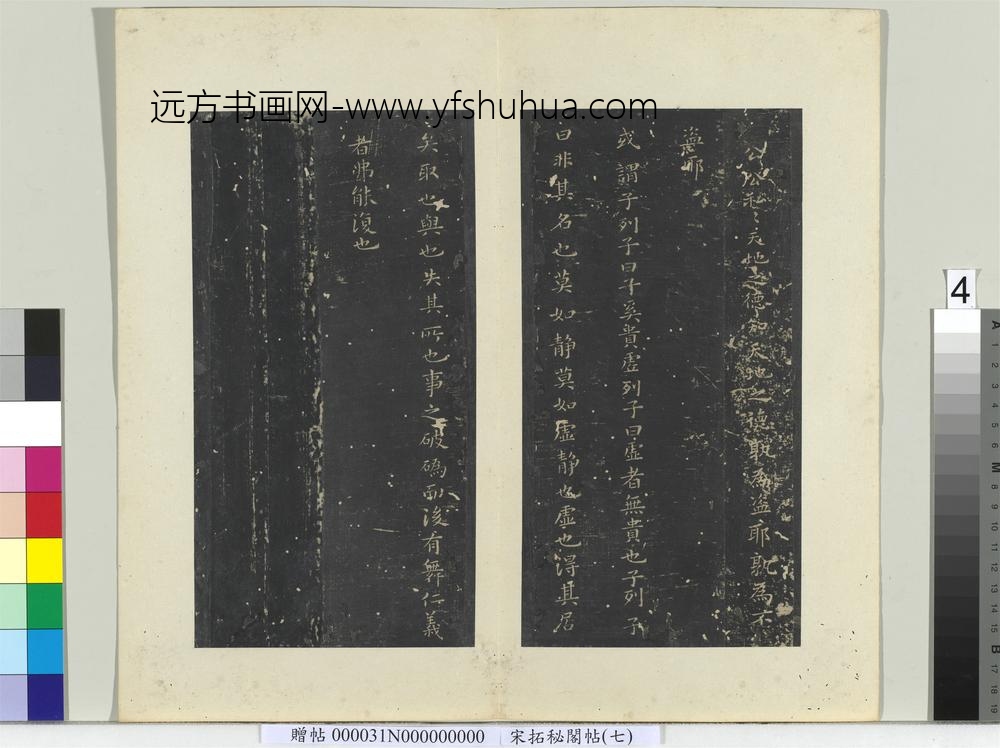 远方书画网-www.yfshuhua.com
公公私々天地之德知天地之德孰為盜耶孰為不
盜耶
或謂子列子曰子奚貴虛列子曰虛者無貴也子列子
曰非其名也莫如静莫如虛静也虛也得其居
矣取也與也失其所也事之破而後有舞仁義
者弗能復也
4
贈帖 000031N000000000 宋拓秘閣帖(七)